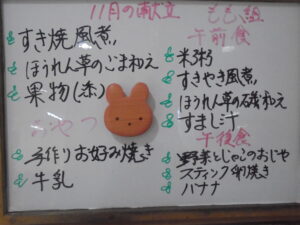 11月の献立
すき焼風煮
ほうれん草のごま和え
果物(柿)
おやつ
手作りお好み焼き
牛乳
もも組
午前食
米粥
すきやき風煮
ほうれん草の磯和え
すまし汁
午後食
野菜とじゃこのおじや
スティック卵焼き
バナナ